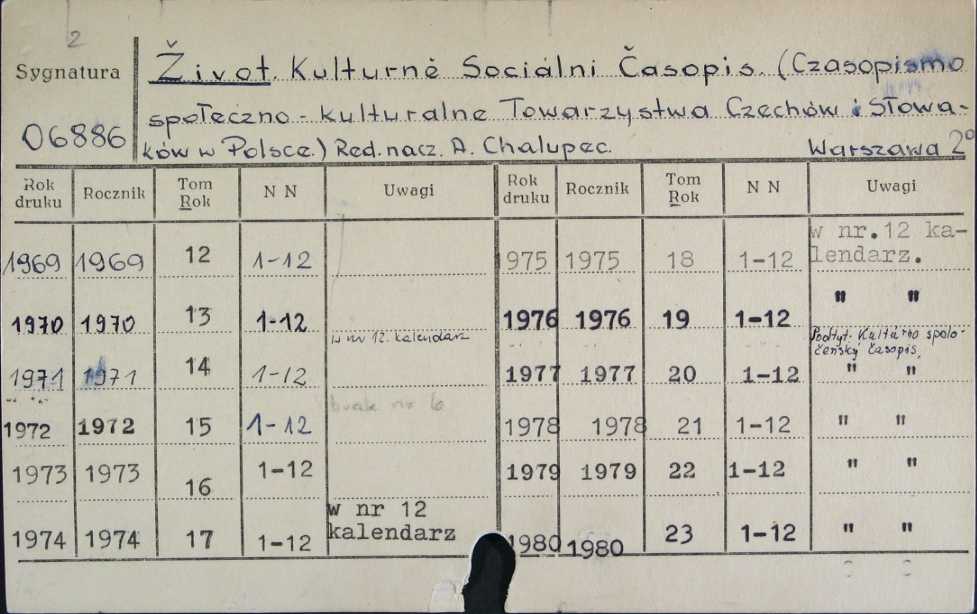 2
Sygnatura
06886
Život. Kulturně Sociálni Časopis. (Czasopismo
społeczno-kulturalne Towarzystwa Czechów i Słowa-
ków w Polsce.) Red. nacz. A. Chalupec. Warszawa 2°
Rok druku Rocznik Tom Rok N N Uwagi Rok druku Rocznik Tom Rok N N Uwagi
1969 1969 12 1-12 975 1975 18 1-12 w nr.12 ka-
lendarz.
1970 1970 13 1-12 1976 1976 19 1-12 " "
w nr 12. kalendarz Podtyt. Kultúrno spolo-
čenský časopis,
1971 1971 14 1-12 1977 1977 20 1-12 " "
brak nr 6
1972 1972 15 1-12 1978 1978 21 1-12 " "
1973 1973 16 1-12 1979 1979 22 1-12 " "
w nr 12
1974 1974 17 1-12 kalendarz 1980 1980 23 1-12 " "